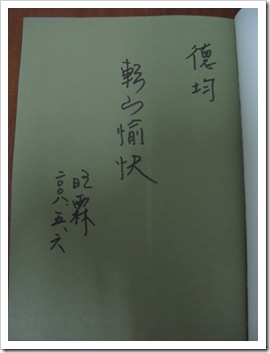 德均
轉山愉快
旺霖
二〇〇八.五.六